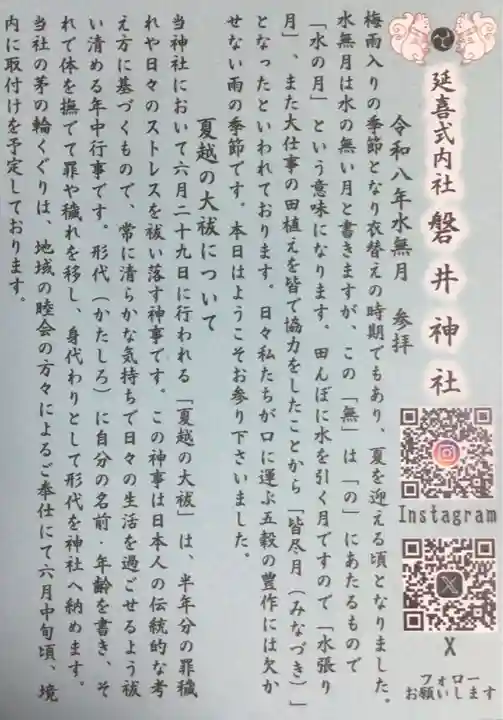 延喜式内社 磐井神社
令和八年水無月 参拝
梅雨入りの季節となり衣替えの時期でもあり、夏を迎える頃となりました。
水無月は水の無い月と書きますが、この「無」は「の」にあたるもので
「水の月」という意味になります。田んぼに水を引く月ですので「水張り
月」、また大仕事の田植えを皆で協力をしたことから「皆尽月（みなづき）」
となったといわれております。日々私たちが口に運ぶ五穀の豊作には欠か
せない雨の季節です。本日はようこそお参り下さいました。
夏越の大祓について
当神社において六月二十九日に行われる「夏越の大祓」は、半年分の罪穢
れや日々のストレスを祓い落す神事です。この神事は日本人の伝統的な考
え方に基づくもので、常に清らかな気持ちで日々の生活を過ごせるよう祓
い清める年中行事です。形代（かたしろ）に自分の名前・年齢を書き、そ
れで体を撫でて罪や穢れを移し、身代わりとして形代を神社へ納めます。
当社の茅の輪くぐりは、地域の睦会の方々によるご奉仕にて六月中旬頃、境
内に取付けを予定しております。
Instagram
X
フォロー
お願いします